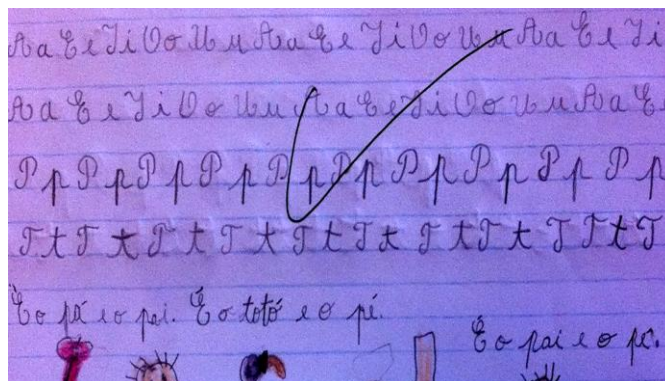 Aa Ee Ii Oo Uu Aa Ee Ii Oo Uu Aa Ee Ii
Aa Ee Ii Oo Uu Aa Ee Ii Oo Uu Aa E
P p P p P p P p P p P p P p P p P p P p
T t T t T t T t T t T t T t T t T T t T
É o pá e o pai. É o totó e o pé.
É o pai e o pé.